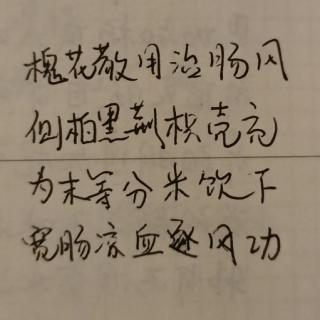 槐花散用治肠风
侧柏黑荆枳壳充
为末等分米饮下
宽肠凉血逐风功